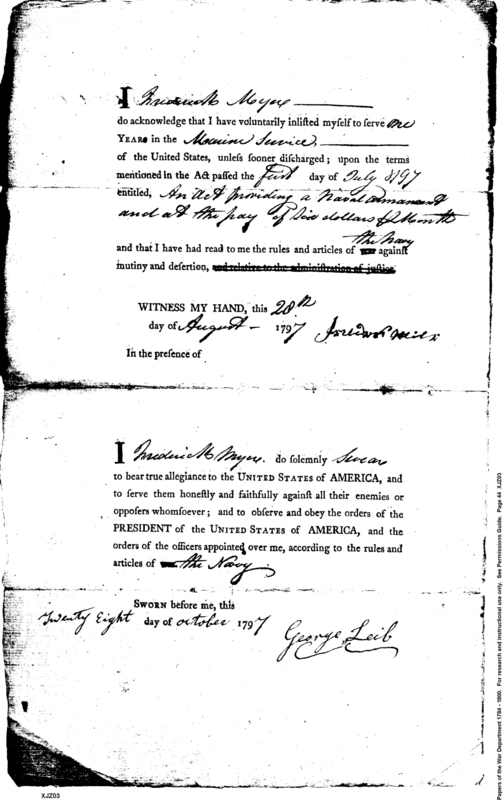 I Frederick Myers
do acknowledge that I have voluntarily inlisted myself to serve one
YEARS in the Marine Service,
of the United States, unless sooner discharged; upon the terms
mentioned in the Act passed the First day of July 1797
entitled, An Act providing a Naval armament
and at the pay of Six dollars ⅌ Month
the Navy
and that I have had read to me the rules and articles of war against
mutiny and desertion, and relative to the administration of justice.
WITNESS MY HAND, this 28th
day of August 1797
In the presence of
I Frederick Myers. do solemnly Swear
to bear true allegiance to the UNITED STATES of AMERICA, and
to serve them honestly and faithfully against all their enemies or
opposers whomsoever; and to observe and obey the orders of the
PRESIDENT of the UNITED STATES of AMERICA, and the
orders of the officers appointed over me, according to the rules and
articles of the Navy.
SWORN before me, this
Twenty Eight day of october 1797
George Leib
XJZ03
Papers of the War Department 1784 - 1800. For research and instructional use only. See Permissions Guide. Page 44 XJZ03